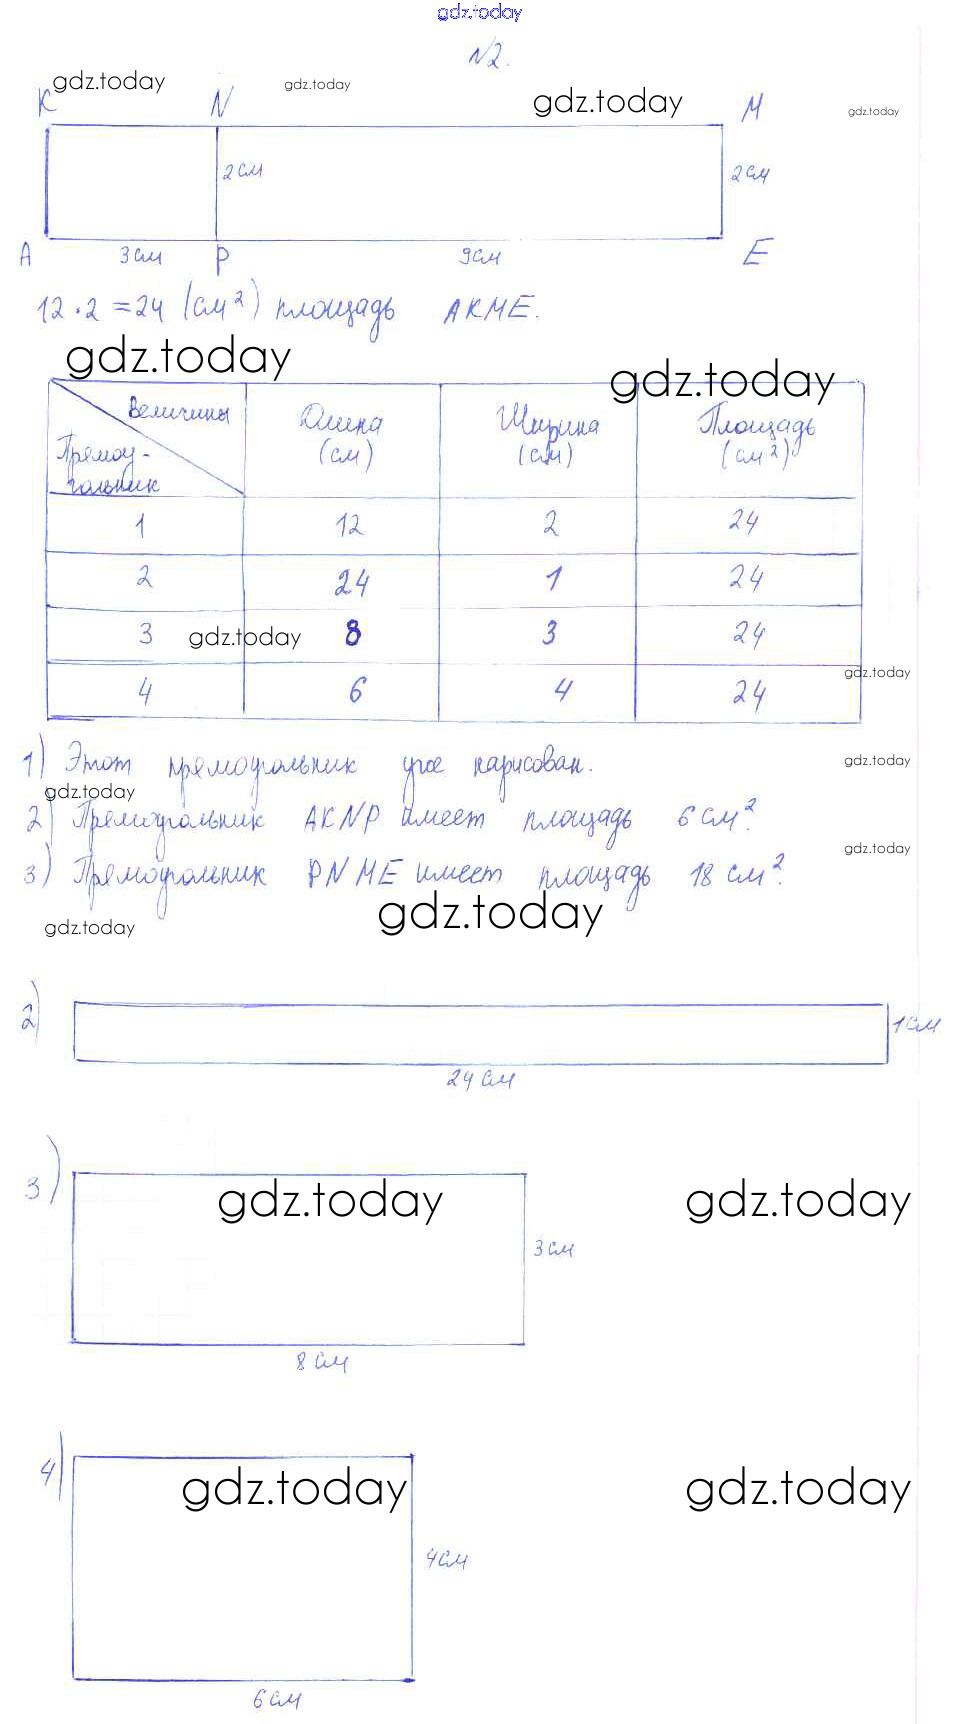 gdz.today
N2.
gdz.today gdz.today gdz.today gdz.today
K N M
2см 2см
A 3см P 9см E
12 · 2 = 24 (см²) площадь AKME.
gdz.today gdz.today
Величины
Прямоу-
гольник
Длина
(см)
Ширина
(см)
Площадь
(см²)
1 12 2 24
2 24 1 24
3 gdz.today 8 3 24
4 6 4 24
gdz.today
1) Этот прямоугольник уже нарисован.
gdz.today
gdz.today
2) Прямоугольник AKNP имеет площадь 6 см².
gdz.today
3) Прямоугольник PNME имеет площадь 18 см².
gdz.today gdz.today
2) 1см
24 см
3) gdz.today gdz.today
3см
8 см
4) gdz.today gdz.today
4см
6см